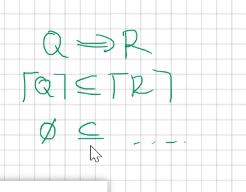 Q ⟹ R
⌈Q⌉ ⊆ ⌈R⌉
∅ ⊆ .....